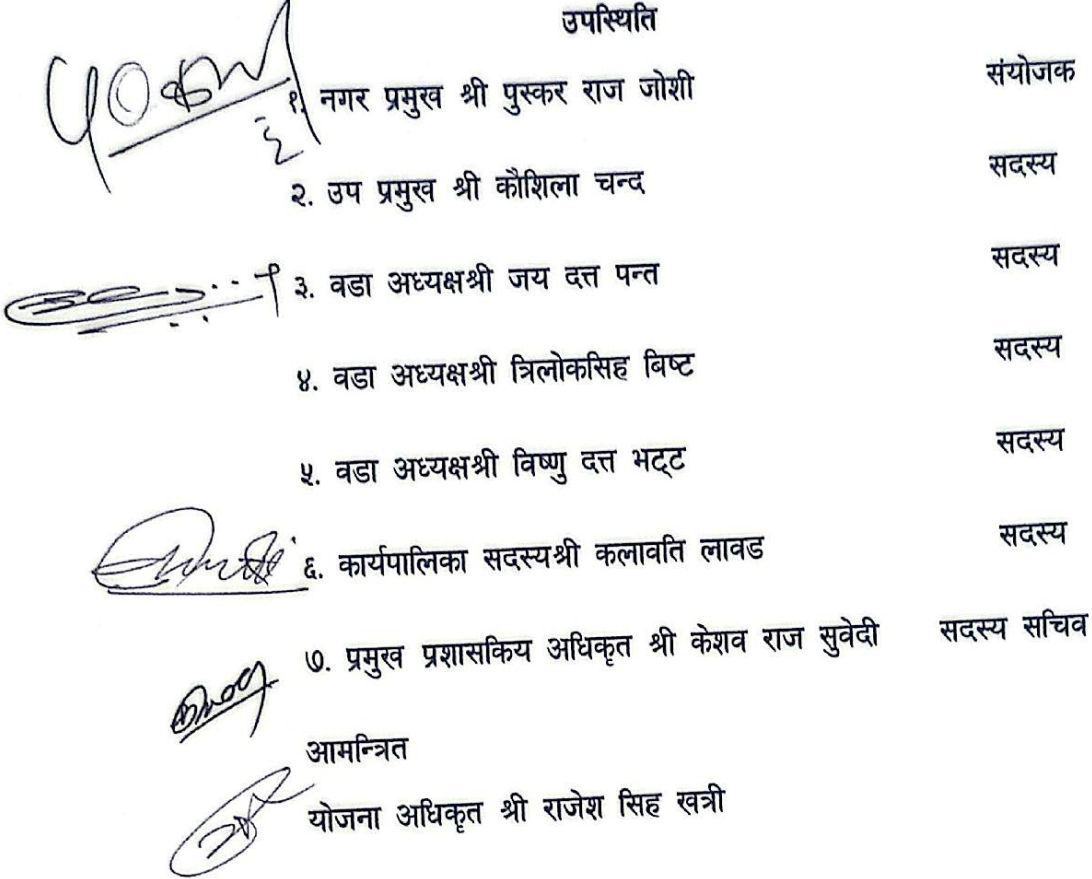 उपस्थिति
१. नगर प्रमुख श्री पुस्कर राज जोशी संयोजक
२. उप प्रमुख श्री कौशिला चन्द सदस्य
३. वडा अध्यक्षश्री जय दत्त पन्त सदस्य
४. वडा अध्यक्षश्री त्रिलोकसिह बिष्ट सदस्य
५. वडा अध्यक्षश्री विष्णु दत्त भट्ट सदस्य
६. कार्यपालिका सदस्यश्री कलावति लावड सदस्य
७. प्रमुख प्रशासकिय अधिकृत श्री केशव राज सुवेदी सदस्य सचिव
आमन्त्रित
योजना अधिकृत श्री राजेश सिह खत्री